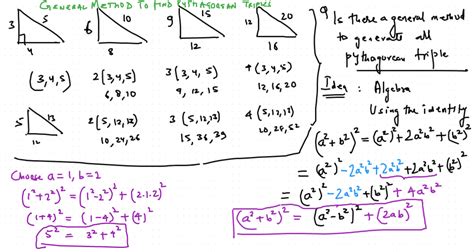 GENERAL METHOD TO FIND PYTHAGOREAN TRIPLES
3 5 4
6 10 8
9 15 12
12 20 16
(3,4,5)
2(3,4,5)
6, 8, 10
3(3,4,5)
9, 12, 15
4(3,4,5)
12, 16, 20
5 13 12
2(5,12,13)
10, 24, 26
3(5,12,13)
15, 36, 39
4(5,12,13)
Q Is there a general method
to generate all
pythagorean triple
Idea: Algebra
Using the identity
(a²+b²)² = (a²)²+2a²b²+(b²)²
= (a²)²-2a²b²+2a²b²+2a²b²+(b²)²
= (a²)²-2a²b²+(b²)²+4a²b²
(a²+b²)² = (a²-b²)²+(2ab)²
Choose a=1, b=2
(1²+2²)² = (1²-2²)²+(2·1·2)²
(1+4)² = (1-4)²+(4)²
5² = 3²+4²